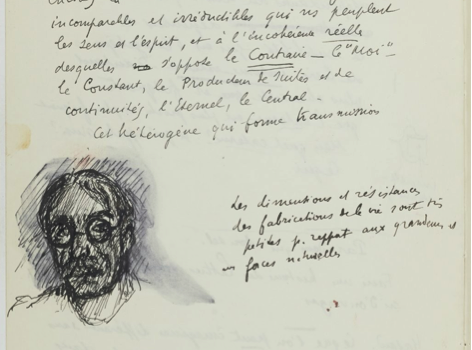 incomparables et irréductibles qui ns peuplent
les sens et l'esprit, et à l'incohérence réelle
desquelles s'oppose le Contraire – le "Moi" –
le Constant, le Producteur de suites et de
continuités, l'Eternel, le Central –
Cet hétérogène qui forme transmission
Les dimensions et résistances
des fabrications de la vie sont très
petites p. rappt aux grandeurs et
forces naturelles